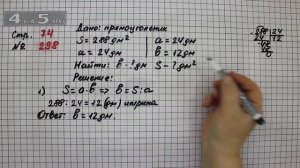 4 5
Стр. 74
№ 298
Дано: прямоугольник
S = 288 дм² | a = 24 дм
a = 24 дм | b = 12 дм
Найти: b - ? дм S - ? дм²
Решение:
1) S = a·b ⇒ b = S : a
288 : 24 = 12 (дм) ширина
Ответ: b = 12 дм.
288 | 24
24 | 12
48
48
0